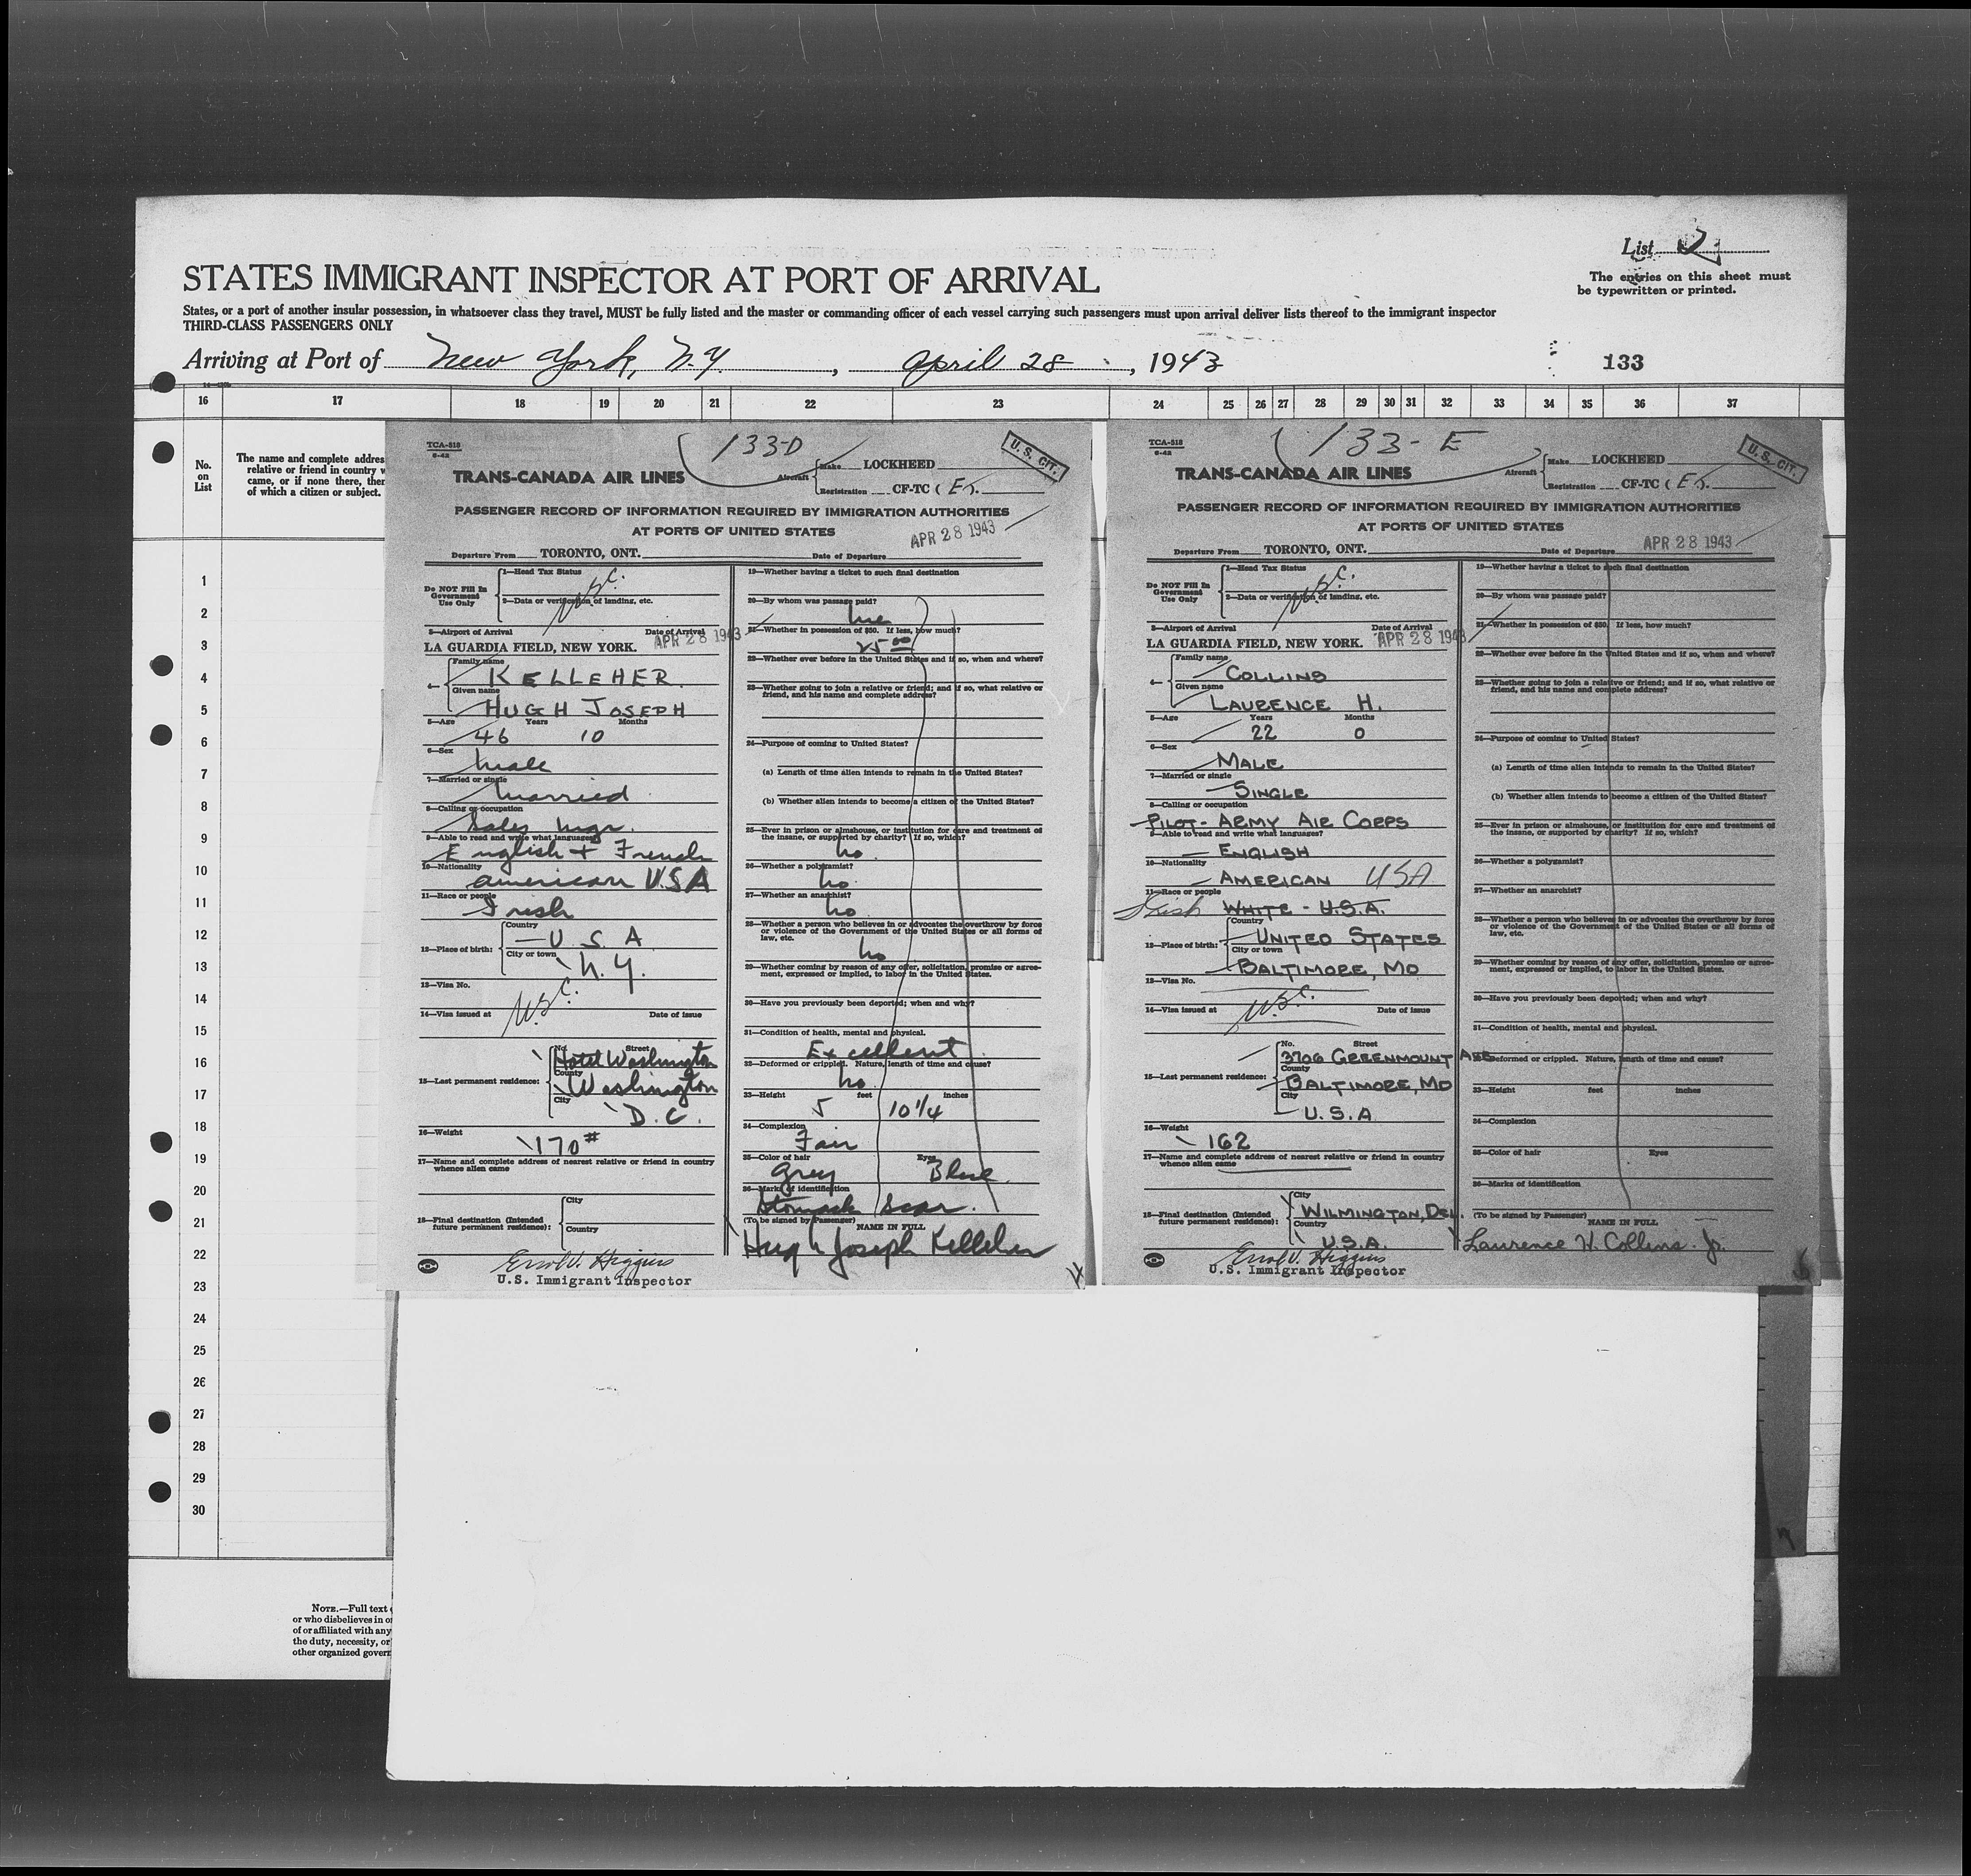 List 2
STATES IMMIGRANT INSPECTOR AT PORT OF ARRIVAL
The entries on this sheet must
be typewritten or printed.
States, or a port of another insular possession, in whatsoever class they travel, MUST be fully listed and the master or commanding officer of each vessel carrying such passengers must upon arrival deliver lists thereof to the immigrant inspector
THIRD-CLASS PASSENGERS ONLY
Arriving at Port of New York, N.Y. , April 28 , 1943
133
16 17 18 19 20 21 22 23 24 25 26 27 28 29 30 31 32 33 34 35 36 37
No.
on
List
The name and complete addres
relative or friend in country w
came, or if none there, ther
of which a citizen or subject.
1
2
3
4
5
6
7
8
9
10
11
12
13
14
15
16
17
18
19
20
21
22
23
24
25
26
27
28
29
30
NOTE.—Full text
or who disbelieves in o
of or affiliated with any
the duty, necessity, or
other organized gover
TCA-518
6-42
133-D
U. S. CIT.
TRANS-CANADA AIR LINES
Aircraft
Make LOCKHEED
Registration CF-TC (
PASSENGER RECORD OF INFORMATION REQUIRED BY IMMIGRATION AUTHORITIES
AT PORTS OF UNITED STATES
Departure From TORONTO, ONT. Date of Departure APR 28 1943
Do NOT Fill In
Government
Use Only
1—Head Tax Status
2—Data or verification of landing, etc.
USC.
3—Airport of Arrival Date of Arrival
LA GUARDIA FIELD, NEW YORK. APR 28 1943
4— Family name
KELLEHER
Given name
HUGH JOSEPH
5—Age Years Months
46 10
6—Sex
Male
7—Married or single
Married
8—Calling or occupation
Sales Mgr.
9—Able to read and write what languages?
English + French
10—Nationality
American USA
11—Race or people
Irish
12—Place of birth: Country
U S A
City or town
N.Y.
13—Visa No.
USC.
14—Visa issued at Date of issue
15—Last permanent residence: No. Street
Hotel Washington
County
Washington
City
D.C.
16—Weight
170#
17—Name and complete address of nearest relative or friend in country
whence alien came
18—Final destination (Intended
future permanent residence): City
Country
Errol V. Higgins
U.S. Immigrant Inspector
19—Whether having a ticket to such final destination
20—By whom was passage paid?
Me
21—Whether in possession of $50. If less, how much?
25.00
22—Whether ever before in the United States and if so, when and where?
23—Whether going to join a relative or friend; and if so, what relative or
friend, and his name and complete address?
24—Purpose of coming to United States?
(a) Length of time alien intends to remain in the United States?
(b) Whether alien intends to become a citizen of the United States?
25—Ever in prison or almshouse, or institution for care and treatment of
the insane, or supported by charity? If so, which?
No.
26—Whether a polygamist?
No.
27—Whether an anarchist?
No
28—Whether a person who believes in or advocates the overthrow by force
or violence of the Government of the United States or all forms of
law, etc.
No
29—Whether coming by reason of any offer, solicitation, promise or agree-
ment, expressed or implied, to labor in the United States.
30—Have you previously been deported; when and why?
31—Condition of health, mental and physical.
Excellent
32—Deformed or crippled. Nature, length of time and cause?
No.
33—Height feet inches
5 10 1/4
34—Complexion
Fair
35—Color of hair Eyes
Grey Blue.
36—Marks of identification
Stomach Scar.
(To be signed by Passenger)
NAME IN FULL
Hugh Joseph Kelleher
TCA-518
6-42
133-E
U. S. CIT.
TRANS-CANADA AIR LINES
Aircraft
Make LOCKHEED
Registration CF-TC (
PASSENGER RECORD OF INFORMATION REQUIRED BY IMMIGRATION AUTHORITIES
AT PORTS OF UNITED STATES
Departure From TORONTO, ONT. Date of Departure APR 28 1943
Do NOT Fill In
Government
Use Only
1—Head Tax Status
2—Data or verification of landing, etc.
USC.
3—Airport of Arrival Date of Arrival
LA GUARDIA FIELD, NEW YORK. APR 28 1943
4— Family name
COLLINS
Given name
LAURENCE H.
5—Age Years Months
22 0
6—Sex
MALE
7—Married or single
SINGLE
8—Calling or occupation
PILOT- ARMY AIR CORPS
9—Able to read and write what languages?
ENGLISH
10—Nationality
AMERICAN USA
11—Race or people
Irish WHITE - U.S.A.
12—Place of birth: Country
UNITED STATES
City or town
BALTIMORE, MD
13—Visa No.
USC.
14—Visa issued at Date of issue
15—Last permanent residence: No. Street
3706 GREENMOUNT AVE
County
BALTIMORE, MD
City
U.S.A
16—Weight
162
17—Name and complete address of nearest relative or friend in country
whence alien came
18—Final destination (Intended
future permanent residence): City
WILMINGTON, DEL.
Country
U.S.A.
Errol V. Higgins
U.S. Immigrant Inspector
19—Whether having a ticket to such final destination
20—By whom was passage paid?
21—Whether in possession of $50. If less, how much?
22—Whether ever before in the United States and if so, when and where?
23—Whether going to join a relative or friend; and if so, what relative or
friend, and his name and complete address?
24—Purpose of coming to United States?
(a) Length of time alien intends to remain in the United States?
(b) Whether alien intends to become a citizen of the United States?
25—Ever in prison or almshouse, or institution for care and treatment of
the insane, or supported by charity? If so, which?
26—Whether a polygamist?
27—Whether an anarchist?
28—Whether a person who believes in or advocates the overthrow by force
or violence of the Government of the United States or all forms of
law, etc.
29—Whether coming by reason of any offer, solicitation, promise or agree-
ment, expressed or implied, to labor in the United States.
30—Have you previously been deported; when and why?
31—Condition of health, mental and physical.
32—Deformed or crippled. Nature, length of time and cause?
33—Height feet inches
34—Complexion
35—Color of hair Eyes
36—Marks of identification
(To be signed by Passenger)
NAME IN FULL
Laurence H. Collins Jr.